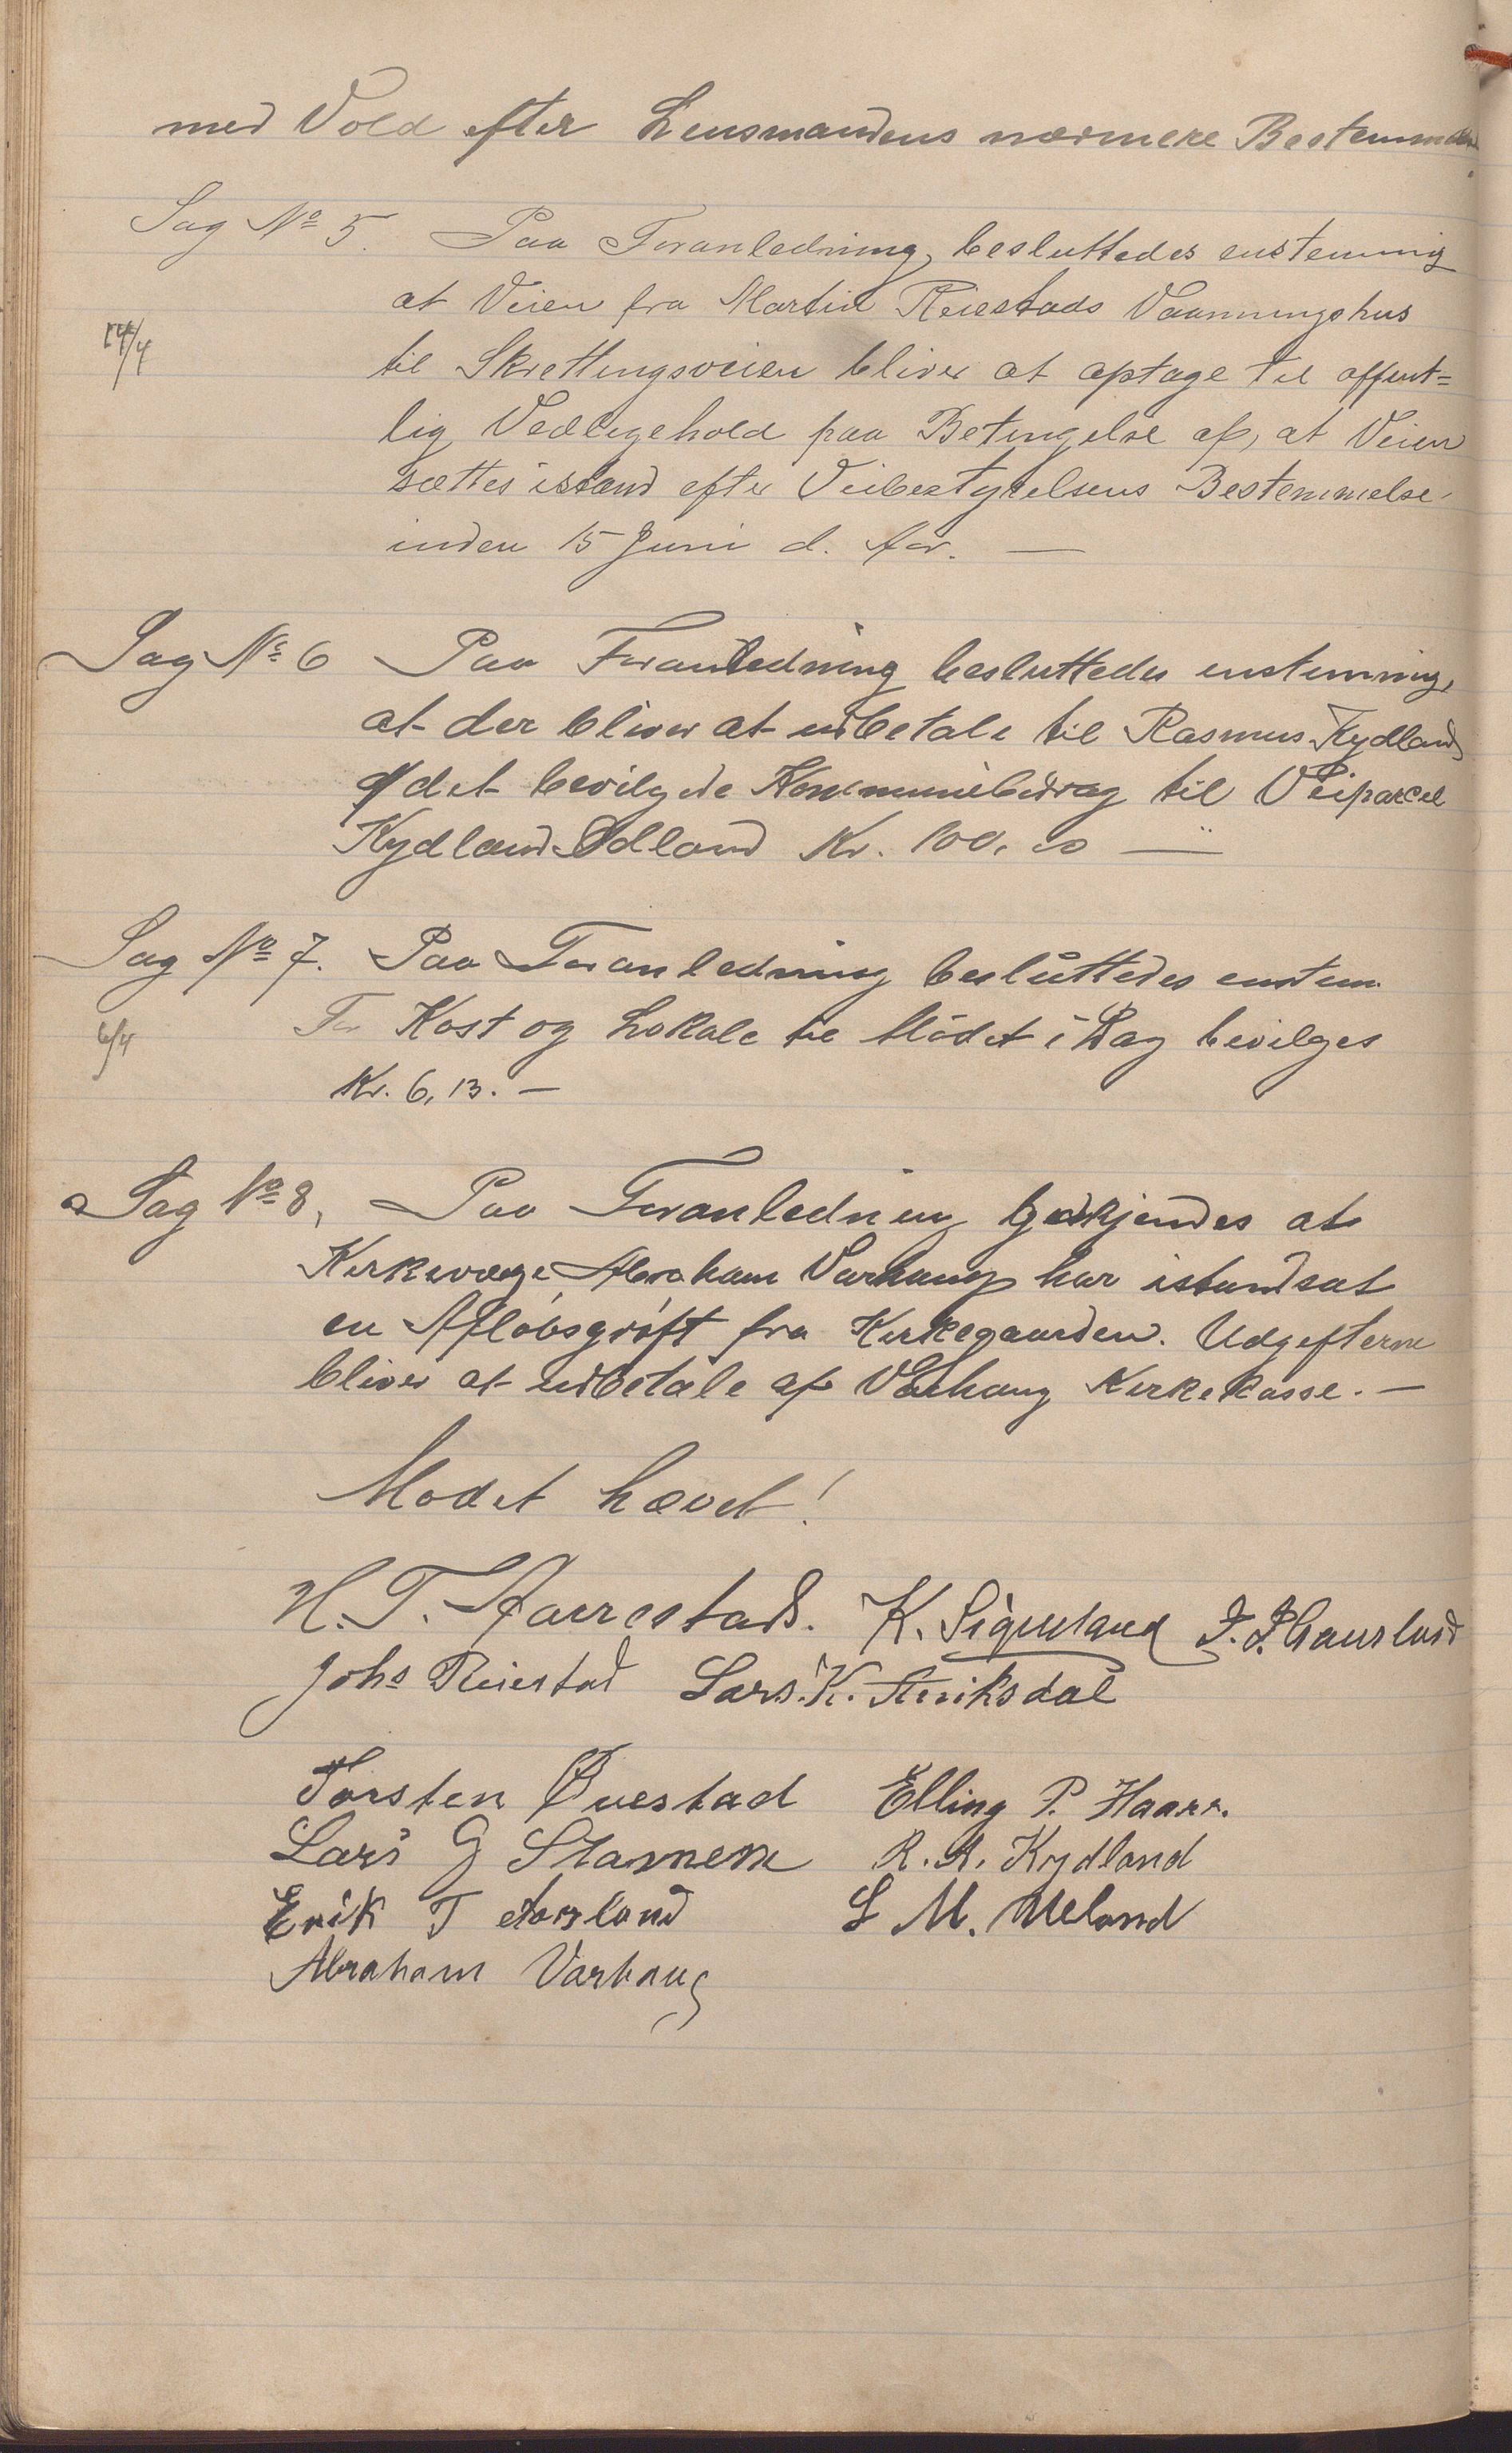 med Vold efter Lensmandens nærmere Bestemmelse.
Sag No 5. Paa Foranledning, besluttedes enstemmig
at Veien fra Martin Reiestads Vaaningshus
14/4
til Skrettingsveien bliver at optage til offent=
lig Vedligehold paa Betingelse af, at Veien
sættes istand efter Veibestyrelsens Bestemmelse
inden 15 Juni d. Aar. —
Sag No 6 Paa Foranledning besluttedes enstemmig,
at der bliver at udbetale til Rasmus Kydland
af det bevilgede Kommunebidrag til Veiparcel
Kydland-Ødland Kr. 100,00 —
Sag No 7. Paa Foranledning besluttedes enstem.
For Kost og Lokale til Mødet i Dag bevilges
6/4
Kr. 6,13. —
Sag No 8, Paa Foranledning godkjendes at
Kirkeværge Abraham Varhaug har istandsat
en Afløbsgrøft fra Kirkegaarden. Udgifterne
bliver at udbetale af Varhaug Kirkekasse. —
Mødet hævet!
H. T. Aarrestad. K. Sigveland
Johs Reiestad Lars. K. Stuiksdal
Torsten Øvestad Elling P. Haarr.
Lars G Stavnem R. R. Kydland
Erik T Aarsland L M. Ueland
Abraham Varhaug